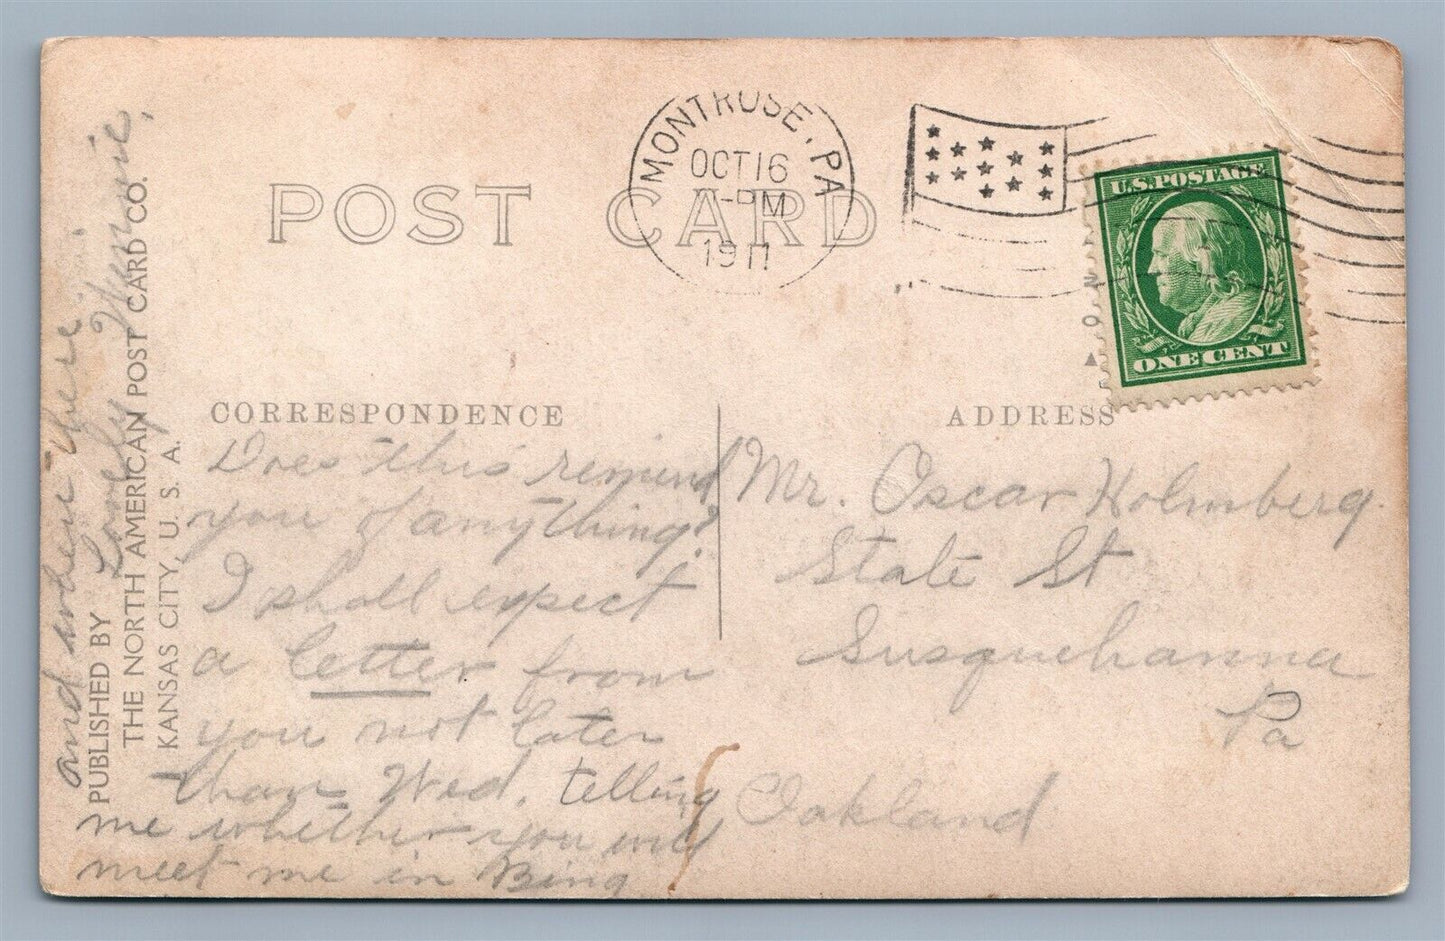 POST CARD
MONTROSE, PA
OCT 16
-PM
1911
U.S. POSTAGE
ONE CENT
CORRESPONDENCE
ADDRESS
Does this remind
you of anything?
I shall expect
a letter from
you not later
than Wed. telling
me whether you will
meet me in Bing
and when & where.
Mr. Oscar Holmberg.
State St
Susquehanna
Pa
Oakland
PUBLISHED BY
THE NORTH AMERICAN POST CARD CO.
KANSAS CITY, U. S. A.